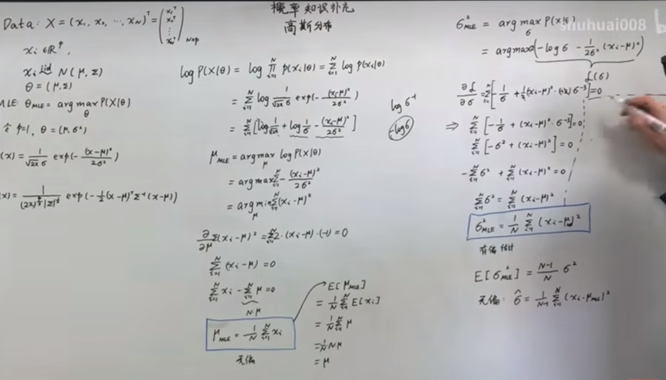 概率知识补充
高斯分布
shuhuai008
Data: X = (x₁, x₂, ⋯, x_N)ᵀ = (x₁ᵀ x₂ᵀ ⋮ x_Nᵀ)_{N×p}
xᵢ ∈ ℝᵖ,
xᵢ iid~ N(μ, Σ)
θ = (μ, Σ)
MLE θ_MLE = arg max_θ P(X|θ)
令 p=1, θ = (μ, σ²)
(x) = 1/(√2π σ) exp(-(x-μ)²/2σ²)
(x) = 1/((2π)^{p/2}|Σ|^{1/2}) exp(-½(x-μ)ᵀ Σ⁻¹ (x-μ))
log P(X|θ) = log ∏_{i=1}^N p(xᵢ|θ) = Σ_{i=1}^N log p(xᵢ|θ)
= Σ_{i=1}^N log 1/(√2π σ) exp(-(xᵢ-μ)²/2σ²)
= Σ_{i=1}^N [log 1/√2π + log 1/σ - (xᵢ-μ)²/2σ²]
log σ⁻¹
-log σ
μ_MLE = arg max_μ log P(X|θ)
= arg max_μ Σ_{i=1}^N -(xᵢ-μ)²/2σ²
= arg min_μ Σ_{i=1}^N (xᵢ-μ)²
∂/∂μ Σ(xᵢ-μ)² = Σ_{i=1}^N 2·(xᵢ-μ)·(-1) = 0
Σ_{i=1}^N (xᵢ-μ) = 0
Σ_{i=1}^N xᵢ - Σ_{i=1}^N μ = 0
Nμ
μ_MLE = 1/N Σ_{i=1}^N xᵢ
无偏
E[μ_MLE]
= 1/N Σ_{i=1}^N E[xᵢ]
= 1/N Σ_{i=1}^N μ
= 1/N Nμ
= μ
σ²_MLE = arg max_σ P(X|θ)
= arg max Σ(-log σ - 1/2σ² (xᵢ-μ)²)
f(σ)
∂f/∂σ = Σ_{i=1}^N [-1/σ + ½(xᵢ-μ)²·(+2)σ⁻³] = 0
⇒ Σ_{i=1}^N [-1/σ + (xᵢ-μ)²·σ⁻³] = 0
Σ_{i=1}^N [-σ² + (xᵢ-μ)²] = 0
-Σ_{i=1}^N σ² + Σ_{i=1}^N (xᵢ-μ)² = 0
Σ_{i=1}^N σ² = Σ_{i=1}^N (xᵢ-μ)²
σ²_MLE = 1/N Σ_{i=1}^N (xᵢ-μ)²
有偏估计
E[σ²_MLE] = (N-1)/N σ²
无偏: σ̂ = 1/(N-1) Σ_{i=1}^N (xᵢ-μ_MLE)²